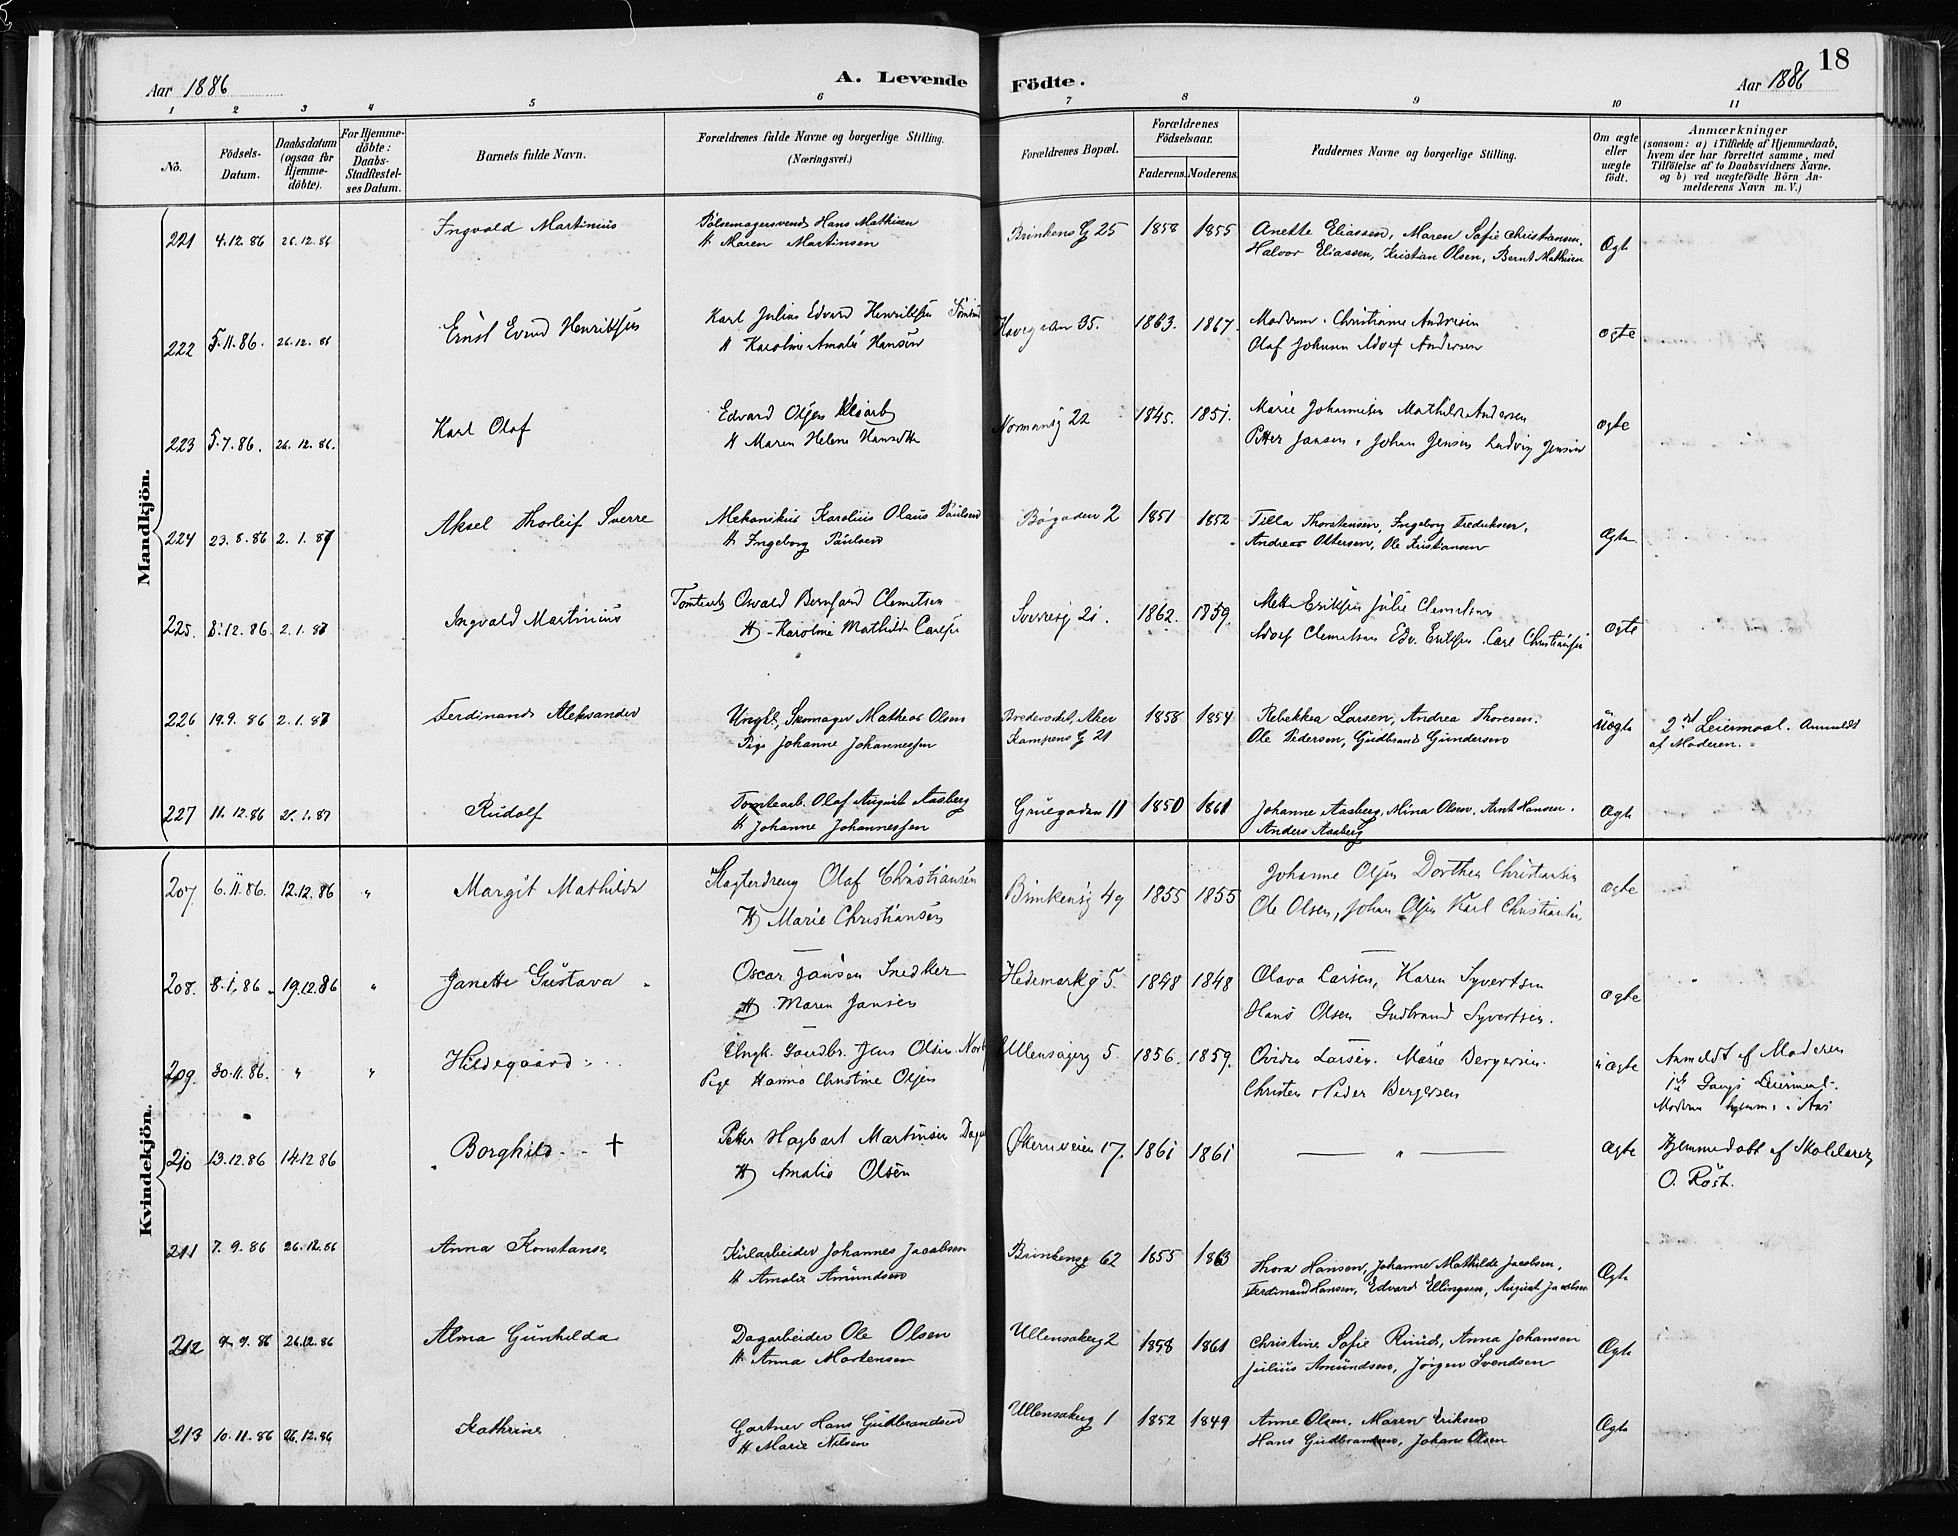 18
Aar 1886
A. Levende Födte.
Aar 1886
1 2 3 4 5 6 7 8 9 10 11
No.
Födsels-Datum.
Daabsdatum (ogsaa for Hjemme-döbte).
For Hjemme-döbte: Daabs-Stadfæstel-ses Datum.
Barnets fulde Navn.
Forældrenes fulde Navne og borgerlige Stilling.
(Næringsvei.)
Forældrenes Bopæl.
Forældrenes Födselsaar.
Faderens. Moderens.
Faddernes Navne og borgerlige Stilling.
Om ægte eller uægte födt.
Anmærkninger
(saasom: a) i Tilfælde af Hjemmedaab, hvem der har forrettet samme, med Tilföielse af to Daabsvidners Navne. og b) ved uægtefödte Börn Anmelderens Navn m. V.)
Mandkjön.
221 4.12.86 26.12.86 Ingvald Martinius Pölsemagersvend Hans Mathisen Brinkens G 25 1858 1855 Anette Eliassen, Maren Sofie Christiansen, Ægte
H. Maren Martinsen Halvor Eliassen, Kristian Olsen, Bernt Mathisen
222 5.11.86. 26.12.86 Ernst Henriksen Karl Julius Edvard Henriksen 35. 1863. 1867. Moderen. Christiane Andresen ægte
H Karoline Amalie Hansen Olaf Johann Adolf Andersen
223 5.7.86. 26.12.86. Karl Olaf Edvard Olsen Normansg 22 1845. 1851. Marie Johannesen Mathilde Andersen ægte
H Maren Helene Petter Jansen, Johan Jensen Ludvig Jensen
224 23.8.86 2.1.87 Aksel Thorleif Sverre Mekanikus Karolius Olaus Paulsen Bögaden 2 1851 1852 Tilla Thorstensen, Ingeborg Fredriksen, Ægte
H. Ingeborg Paulsen Andreas Ottersen, Ole Kristiansen
225. 8.12.86. 2.1.87 Ingvald Martinius Tomtearb Osvald Bernhard Clemetsen Sverresg 21. 1862. 1859. Mette Eriksen Julie Clemetsen ægte
H. Karoline Mathilde Adolf Clemetsen Edv. Eriksen. Carl Christensen
226 19.9.86 2.1.87 Ferdinand Aleksander Ungk. Skomager Matheas Olsen Aker 1858 1854 Rebekka Larsen, Andrea Thoresen. Uægte 2 Leiermaal. Anmeldt
Pige Johanne Johannessen Kampens G 21 Ole Pedersen, Gudbrand Gundersen af Moderen.
227 11.12.86 2.1.87 Rudolf Tomtearb. Olaf August Aasberg Gruegaden 11 1850 1861 Johanne Aasberg, Mina Olsen, Arnt Hansen. Ægte
H Johanne Johannessen Anders Aasberg
Kvindekjön.
207. 6.11.86. 12.12.86 " Margit Mathilda Slagterdreng Olaf Christiansen Brinkensg 49 1855 1855 Johanne Olsen Dorthea Christiansen ægte
H Marie Christiansen Ole Olsen, Johan Olsen Karl Christiansen
208. 8.1.86 19.12.86 " Janette Gustava Oscar Jansen Snedker Hedemarkg 5. 1848 1848 Olava Larsen, Karen Syvertsen ægte "
H Maren Jansen Hans Olsen Gudbrand Syvertsen.
209. 30.11.86. " " Hildegaard Ungk. Jens Olsen Ullensagerg 5. 1856. 1859. Larsen. Marie Bergersen. uægte Anmeldt af Moderen
Pige Hanna Christine Olsen Christen Peder Bergersen Gangs Leiermaal. Moderen
210 13.12.86 14.12.86 Borghild † Petter Hagbart Martinsen Økernveien 17. 1861 1861 — " — Ægte Hjemmedöbt af Skolelærer
H Amalie Olsen O. Röst.
211 7.9.86 26.12.86 Anna Konstanse Kularbeider Johannes Jacobsen Brinkensg 62 1855 1863 Thora Hansen, Johanne Mathilde Jacobsen, Ægte
H Amalie Amundsen Ferdinand Hansen, Edvard Ellingsen, August Jacobsen
212 9.9.86 26.12.86 Alma Gunhilda Dagarbeider Ole Olsen Ullensakerg 2 1858 1861 Christine Sofie Ruud, Anna Johansen Ægte
H Anna Mortensen Julius Amundsen, Jörgen Svendsen
213 10.11.86 26.12.86 Kathrine Gartner Hans Gudbrandsen Ullensakerg 1 1852 1849 Anne Olsen. Maren Eriksen Ægte
H Marie Nilsen Hans Gudbrandsen, Johan Olsen